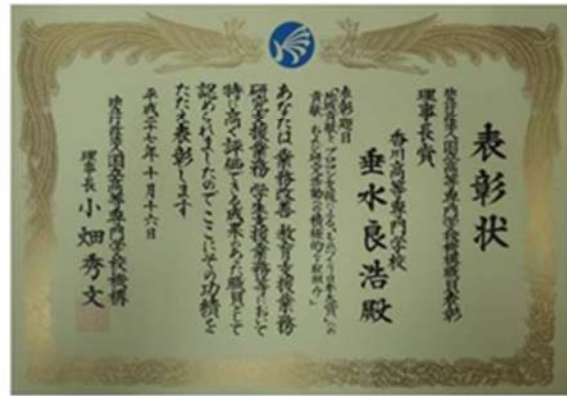 表彰状
独立行政法人国立高等専門学校機構職員表彰
理事長賞
香川高等専門学校
垂水良浩殿
表彰題目
あなたは業務改善 教育支援業務
研究支援業務 学生支援業務等において
特に高く評価できる成果のあった職員として
認められましたのでここにその功績を
たたえ表彰します
平成二十七年十月十六日
独立行政法人国立高等専門学校機構
理事長 小畑秀文